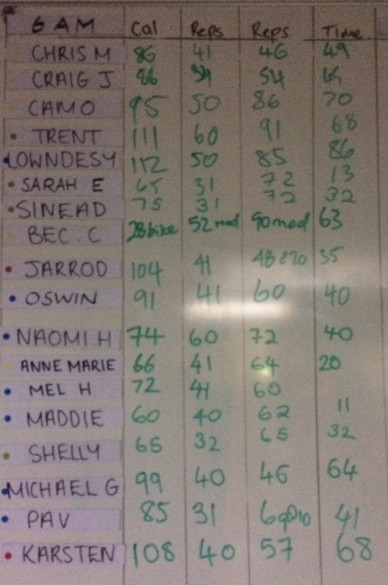 6 AM Cal Reps Reps Time
CHRIS M 86 41 46 49
CRAIG J 86 54
CAMO 95 50 86 70
TRENT 111 60 91 68
LOWNDESY 112 50 85 86
SARAH E 65 31 72 13
SINEAD 75 31 72 32
BEC. C 28 bike 52 mod 90 mod 63
JARROD 104 41 48 @20 35
OSWIN 91 41 60 40
NAOMI H 74 60 72 40
ANNE MARIE 66 41 64 20
MEL H 72 41 60
MADDIE 60 40 62 11
SHELLY 65 32 65 32
MICHAEL G 99 40 46 64
PAV 85 31 41
KARSTEN 108 40 57 68